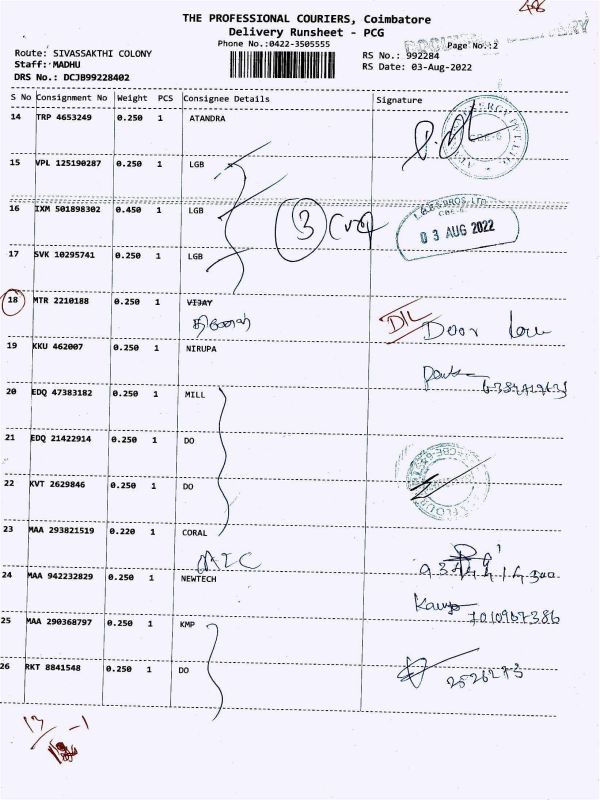 THE PROFESSIONAL COURIERS, Coimbatore
Delivery Runsheet - PCG
Phone No.:0422-3505555
Page No.:2
Route: SIVASSAKTHI COLONY
RS No.: 992284
Staff: MADHU
RS Date: 03-Aug-2022
DRS No.: DCJB99228402
S No Consignment No Weight PCS Consignee Details Signature
14 TRP 4653249 0.250 1 ATANDRA
15 VPL 125190287 0.250 1 LGB
16 IXM 501898302 0.450 1 LGB
3
03 AUG 2022
17 SVK 10295741 0.250 1 LGB
18 MTR 2210188 0.250 1 VIJAY
D/L Door lock
19 KKU 462007 0.250 1 NIRUPA
20 EDQ 47383182 0.250 1 MILL
21 EDQ 21422914 0.250 1 DO
22 KVT 2629846 0.250 1 DO
23 MAA 293821519 0.220 1 CORAL
24 MAA 942232829 0.250 1 NEWTECH
7010967386
25 MAA 290368797 0.250 1 KMP
26 RKT 8841548 0.250 1 DO
2526273